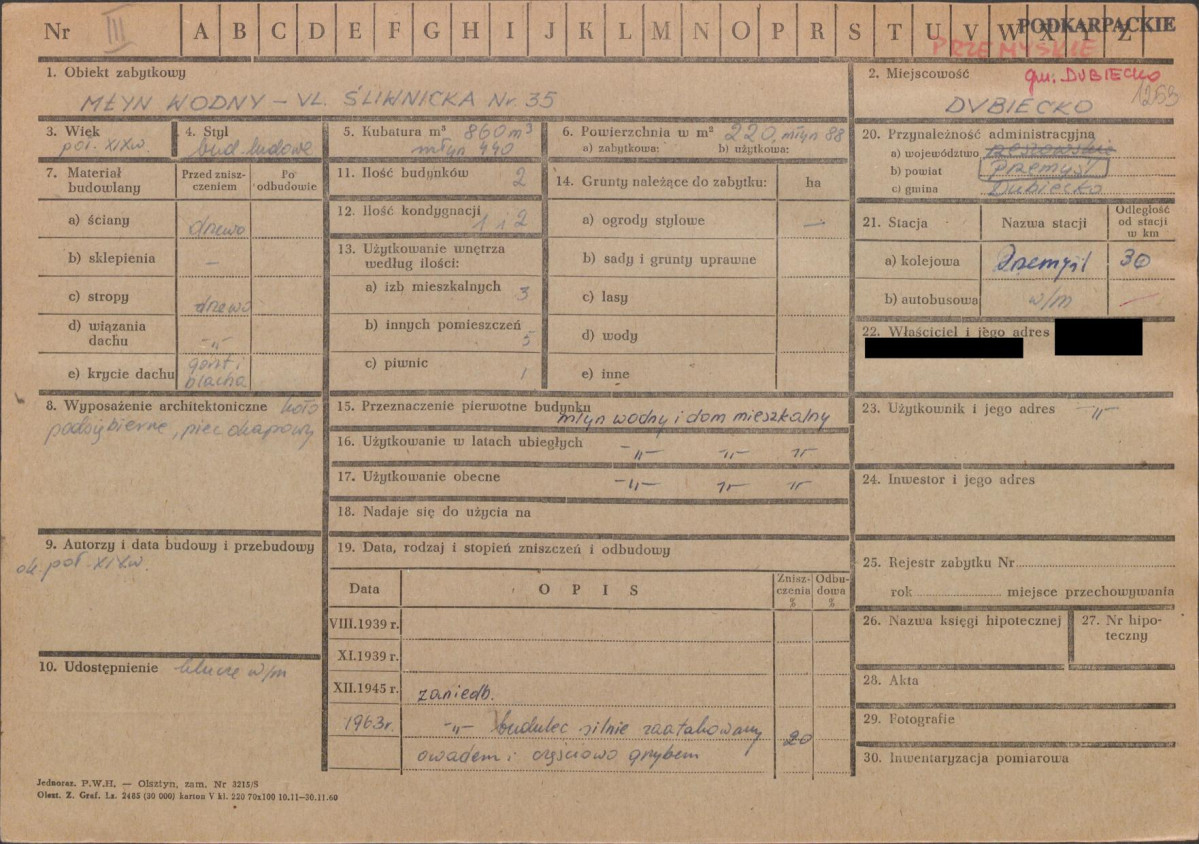 Nr III A B C D E F G H I J K L M N O P R S T U V W X Y Z
PODKARPACKIE
PRZEMYSKIE
1. Obiekt zabytkowy
MŁYN WODNY – VL. ŚLIWNICKA Nr. 35
2. Miejscowość
gm. DUBIECKO
1263
DVBIECKO
3. Więk
poł. XIXw.
4. Styl
bud. ludowe
5. Kubatura m³ 860 m³
młyn 440
6. Powierzchnia w m² 220, młyn 88
a) zabytkowa: b) użytkowa:
20. Przynależność administracyjna
a) województwo rzeszowskie
b) powiat Przemyśl
c) gmina Dubiecko
7. Materiał budowlany
Przed znisz-
czeniem
Po
odbudowie
a) ściany drzewo
b) sklepienia –
c) stropy drzewo
d) wiązania
dachu -„-
e) krycie dachu gont i
blacha
11. Ilość budynków 2
12. ilość kondygnacji 1 i 2
13. Użytkowanie wnętrza
według ilości:
a) izb mieszkalnych 3
b) innych pomieszczeń 5
c) piwnic 1
14. Grunty należące do zabytku: ha
a) ogrody stylowe —
b) sady i grunty uprawne
c) lasy
d) wody
e) inne
21. Stacja Nazwa stacji
Odległość
od stacji
w km
a) kolejowa Przemyśl 30
b) autobusowa w/m —
22. Właściciel i jego adres
8. Wyposażenie architektoniczne koło
podsiębierne, piec okapowy
15. Przeznaczenie pierwotne budynku
młyn wodny i dom mieszkalny
16. Użytkowanie w latach ubiegłych -„- -„- -„-
17. Użytkowanie obecne -„- -„- -„-
18. Nadaje się do użycia na
23. Użytkownik i jego adres -„-
24. Inwestor i jego adres
9. Autorzy i data budowy i przebudowy
ok. poł. XIXw.
19. Data, rodzaj i stopień zniszczeń i odbudowy
Data
O P I S
Znisz-
czenia
%
Odbu-
dowa
%
VIII.1939 r.
XI.1939 r.
XII.1945 r. zaniedb.
1963r. -„- budulec silnie zaatakowany
owadem i częściowo grzybem 20
10. Udostępnienie klucze w/m
25. Rejestr zabytku Nr
rok miejsce przechowywania
26. Nazwa księgi hipotecznej
27. Nr hipo-
teczny
28. Akta
29. Fotografie
30. Inwentaryzacja pomiarowa
Jednoraz. P.W.H. — Olsztyn, zam. Nr 3215/S
Olszt. Z. Graf. Lz. 2485 (30 000) karton V kl. 220 70x100 10.11—30.11.60